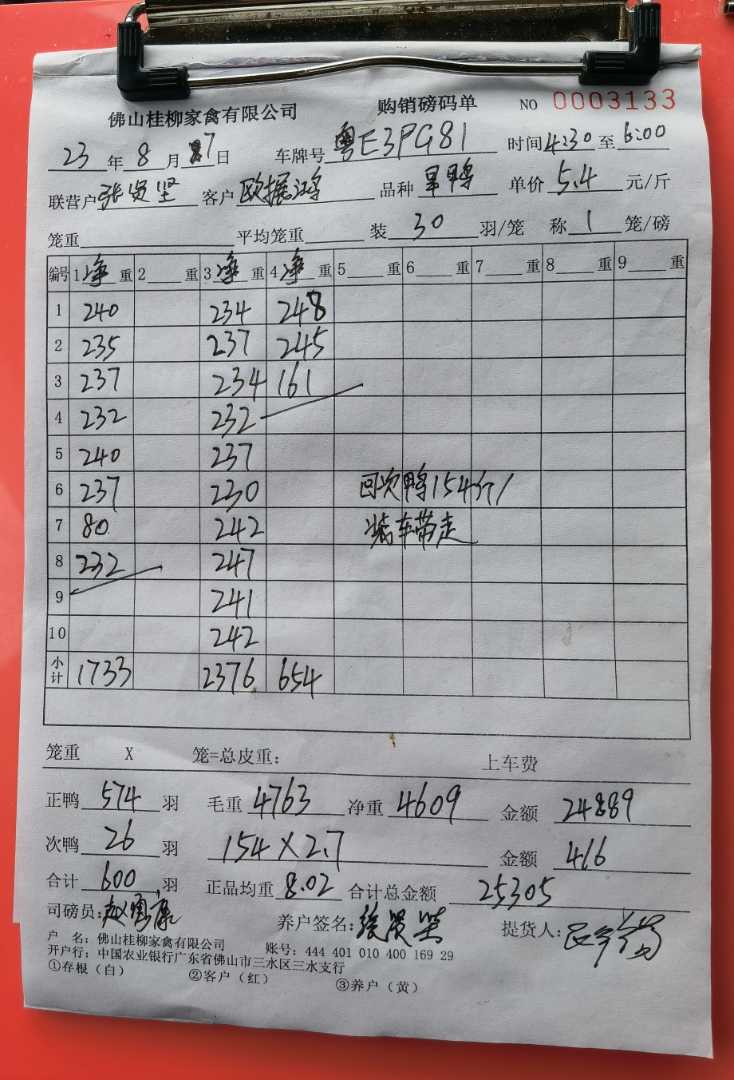 佛山桂柳家禽有限公司 购销磅码单 NO 0003133
23 年 8 月 7 日 车牌号 粤E3PG81 时间 4:30 至 6:00
联营户 张贤坚 客户 欧振鸿 品种 单价 5.4 元/斤
笼重 平均笼重 装 30 羽/笼 称 1 笼/磅
编号 1 净 重 2 重 3 净 重 4 净 重 5 重 6 重 7 重 8 重 9 重
1 240 234 248
2 235 237 245
3 237 234 161
4 232 232
5 240 237
6 237 230 回次鸭154斤/
7 80 242 装车带走
8 232 247
9 241
10 242
小计 1733 2376 654
笼重 X 笼=总皮重: 上车费
正鸭 574 羽 毛重 4763 净重 4609 金额 24889
次鸭 26 羽 154×2.7 金额 416
合计 600 羽 正品均重 8.02 合计总金额 25305
司磅员: 养户签名: 提货人:
户 名: 佛山桂柳家禽有限公司 账号: 444 401 010 400 169 29
开户行: 中国农业银行广东省佛山市三水区三水支行
①存根(白) ②客户(红) ③养户(黄)